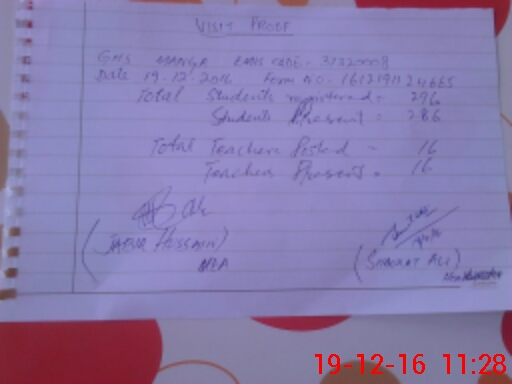 VISIT PROOF
GHS MANGA EMIS CODE - 31320008
Date 19-12-2016 Form NO - 1612191124665
Total Students registered = 296
Students Present = 286
Total Teachers Posted = 16
Teachers Present = 16
(JAFAR HUSSAIN)
MEA
(SHAUKAT ALI)
19-12-16 11:28